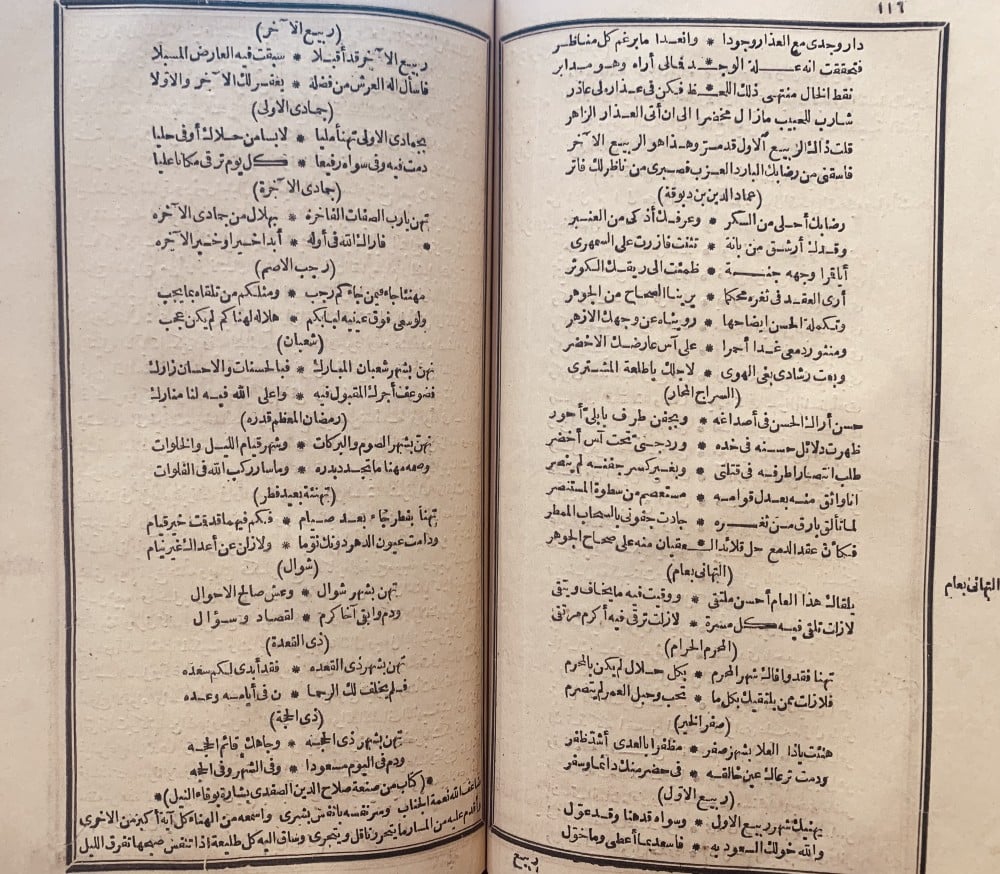 ١١٦
دار وجدى مع العذار وجودا * وانعدا ما برغم كل مناظر
فتحققت انه علة الوجد فمالى أراه وهو مدابر
نقط الخال منتهى ذلك اللحظ فكن فى عذاره لى عاذر
شارب للحبيب ما زال مخضرا الى ان أتى العذار الزاهر
قلت ذاك الربيع الاول قد مرّ وهذا هو الربيع الآخر
فاسقنى من رضابك البارد العذب فصبرى من ناظرك فاتر
(عماد الدين بن دبوقة)
رضابك أحلى من السكر * وعرفك أذكى من العنبر
وقدك أرشق من بانة * تثنت فازرت على السمهرى
أيا قمرا وجهه جنة * ظمئت الى ريقك الكوثر
أرى العقد فى ثغره محكما * يرينا الصحاح من الجوهر
وتكملة الحسن ايضاحها * رويناه عن وجهك الازهر
ومنثور دمعى غدا أحمرا * على آس عارضك الاخضر
وبعت رشادى بغى الهوى * لاجلك يا طلعة المشترى
(السراج المحار)
حسن أراك الحسن فى أصداغه * وبجفن طرف بابلىّ أحور
ظهرت دلائل حسنه فى خده * ورد جنىّ تحت آس أخضر
طلب انتصارا طرفه فى قتلتى * وبغير كسر جفنه لم ينصر
انا واثق منه بعدل قوامه * مستعصم من سطوة المستنصر
لما تألق بارق من ثغره * جادت جفونى بالسحاب الممطر
فكأنّ عقد الدمع حل قلائد العقيان منه على صحاح الجوهر
(التهانى بعام)
التهانى بعام
يلقاك هذا العام أحسن ملتقى * ووقيت فيه ما يخاف ويتقى
لا زلت تلقى فيه كل مسرة * لا زلت ترقى فيه أكرم مرتقى
(المحرم الحرام)
تهنا فقد وافاك شهر المحرم * بكل حلال لم يكن بالمحرم
فلا زلت ممن يلتقيك بكل ما * تحب وحبل العمر لم يتصرم
(صفر الخير)
هنئت يا ذا العلا بشهر صفر * مظفرا بالعدى أشد ظفر
ودمت ترعاك عين خالقه * فى حضر منك دائما وسفر
(ربيع الاوّل)
يهنيك شهر ربيع الاول * وسواه قد هنا وقد عول
والله خولك السعود به * فاسعد بما أعطى وما خوّل
ربيع
(ربيع الآخر)
ربيع الآخر قد أقبلا * سبقت فيه العارض المسبلا
فاسأل اله العرش من فضله * يغفر لك الآخر والاولا
(جمادى الاولى)
بجمادى الاولى تهنأ مليا * لابسا من حلاك أوفى حليا
دمت فيه وفى سواه رفيعا * كل يوم ترقى مكانا عليا
(جمادى الآخرة)
تهن يا رب الصفات الفاخره * بهلال من جمادى الآخره
فاراك الله فى أوله * أبدا خيرا وخير الآخره
(رجب الاصم)
مهنئا جاء فيمن جاءكم رجب * ومثلكم من تلقاه بما يجب
ولو سعى فوق عينيه لبابكم * هلاله لهناكم لم يكن عجب
(شعبان)
تهن بشهر شعبان المبارك * فبالحسنات والاحسان زارك
فضوعف أجرك المقبول فيه * وأعلى الله فيه لنا منارك
(رمضان المعظم قدره)
تهنّ بشهر الصوم والبركات * وشهر قيام الليل والخلوات
وصمه مهنا ما تجدد بدره * وما سار ركب الله فى الفلوات
(تهنئة بعيد فطر)
تهنأ بفطر جاء بعد صيام * فكم فيهما قدمت خير قيام
ودامت عيون الدهر دونك نوّما * ولا زلن عن أعداك غير نيام
(شوال)
تهن بشهر شوال * وعش صالح الاحوال
ودم وابق آخا كرم * لقصاد وسؤال
(ذى القعدة)
تهن بشهر ذى القعده * فقد أبدى لكم سعده
فلم يخلف لك الرحما * ن فى أيامه وعده
(ذى الحجة)
تهن بشهر ذى الحجه * وجاهك قائم الحجه
ودم فى اليوم مسعودا * وفى الشهر وفى الحجه
*(كتاب من صنعة صلاح الدين الصفدى بشارة بوفاء النيل)*
ضاعف الله نعمة الجناب وسر نفسه بأنفس بشرى وأسمعه من الهناء كل آية أكبر من الاخرى
وأقدم عليه من المسار ما يتحرز ناقل ويتحرى وساق اليه كل طليعة اذا تنفس صبحها تفرق الليل